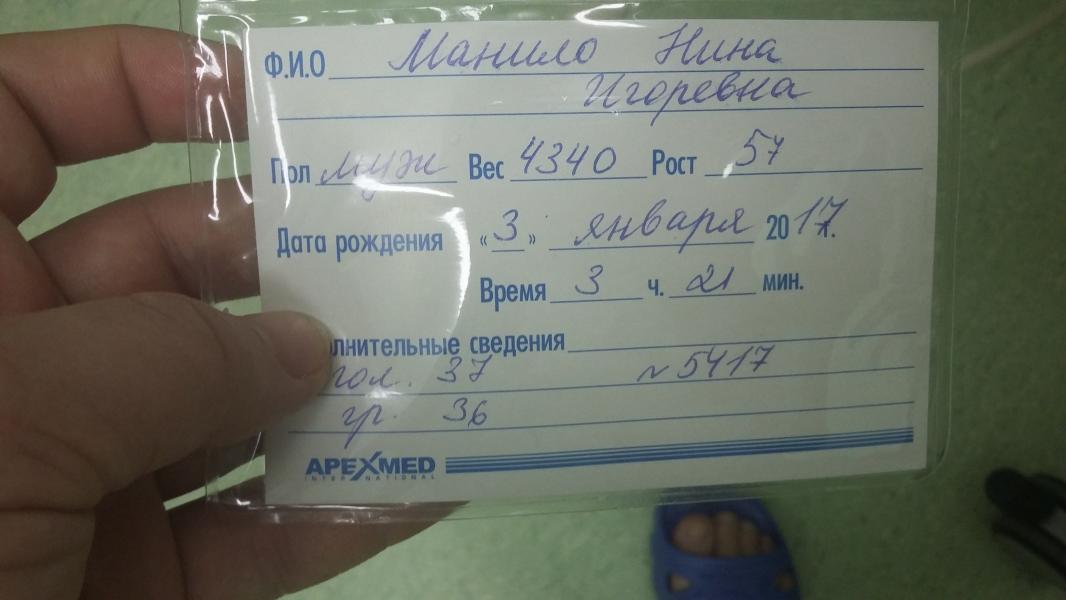 Ф.И.О Манило Нина
Игоревна
Пол муж Вес 4340 Рост 57
Дата рождения «3» января 2017г.
Время 3 ч. 21 мин.
лнительные сведения
гол. 37 N5417
гр. 36
APEXMED
INTERNATIONAL